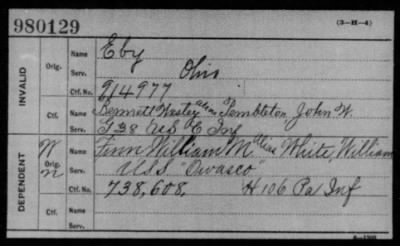 980129 (3-H-4)
INVALID
Orig.
Name Eby
Serv. Ohio
Ctf. No. 914977
Ctf.
Name Bennett Wesley alias Pembleton John W.
Serv. G 38 US C Inf
DEPENDENT
W Orig.
Name Finn William M alias White, William
Serv. U.S.S. "Owasco"
Ctf. No. 738,608 H 106 Pa Inf
Ctf.
Name
Serv.